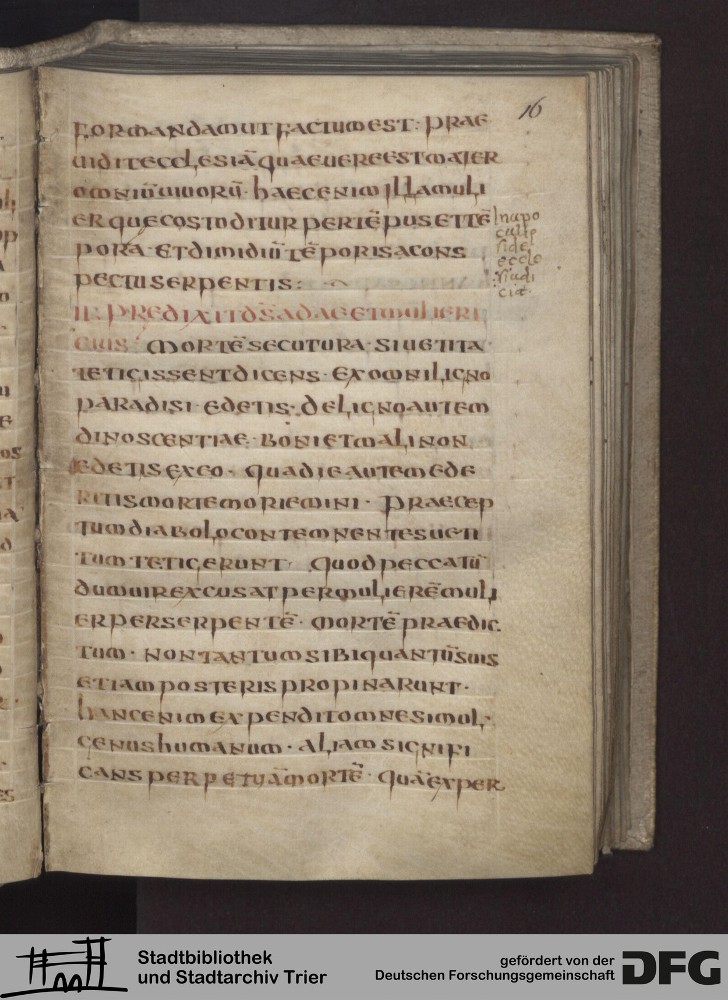 16
FORMANDAMUTFACTUMEST· PRAE
UIDITECCLESIĀQUAEUEREESTMATER
OMNIŪUIUORŪ· HAECENIMILLAMULI
ERQUECOSTODITURPERTĒPUSETTĒ
PORA· ETDIMIDIŪTĒPORISACONS
PECTUSERPENTIS:
Inapo
calip
vide
eccle
viudi
ciā.
II· PREDIXITDS̄ADAEETMULIERI
EIUS· MORTĒSECUTURA· SIUETITA
TETIGISSENTDICENS· EXOMNILIGNO
PARADISI· EDETIS· DELIGNOAUTEM
DINOSCENTIAE· BONIETMALINON
EDETISEXEO· QUADIEAUTEMEDE
RITISMORTEMORIEMINI· PRAECEP
TUMDIABOLOCONTEMNENTESUETI
TUMTETIGERUNT· QUODPECCATŪ
DUMUIREXCUSATPERMULIERĒMULI
ERPERSERPENTĒ· MORTĒPRAEDIC
TUM· NONTANTUMSIBIQUANTŪSUIS
ETIAMPOSTERISPROPINARUNT·
HANCENIMEXPENDITOMNESIMUL·
GENUSHUMANUM· ALIAMSIGNIFI
CANSPERPETUĀMORTĒ· QUĀEXPER
Stadtbibliothek
und Stadtarchiv Trier
gefördert von der
Deutschen Forschungsgemeinschaft
DFG